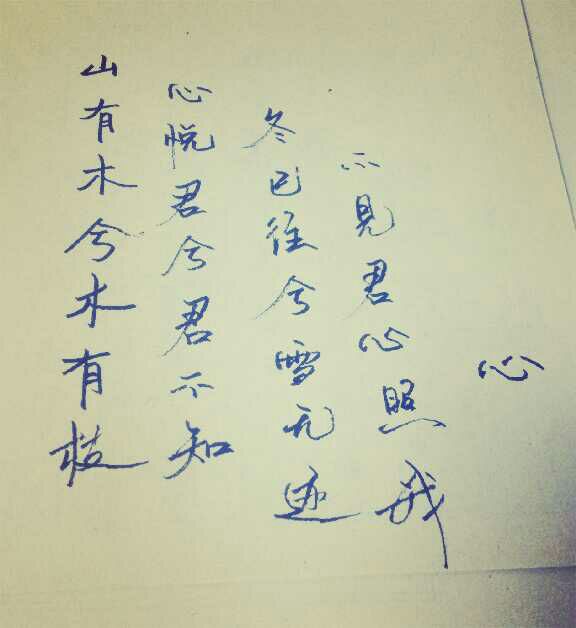 山有木兮木有枝
心悦君兮君不知
冬已往兮雪无迹
不见君心照我
心